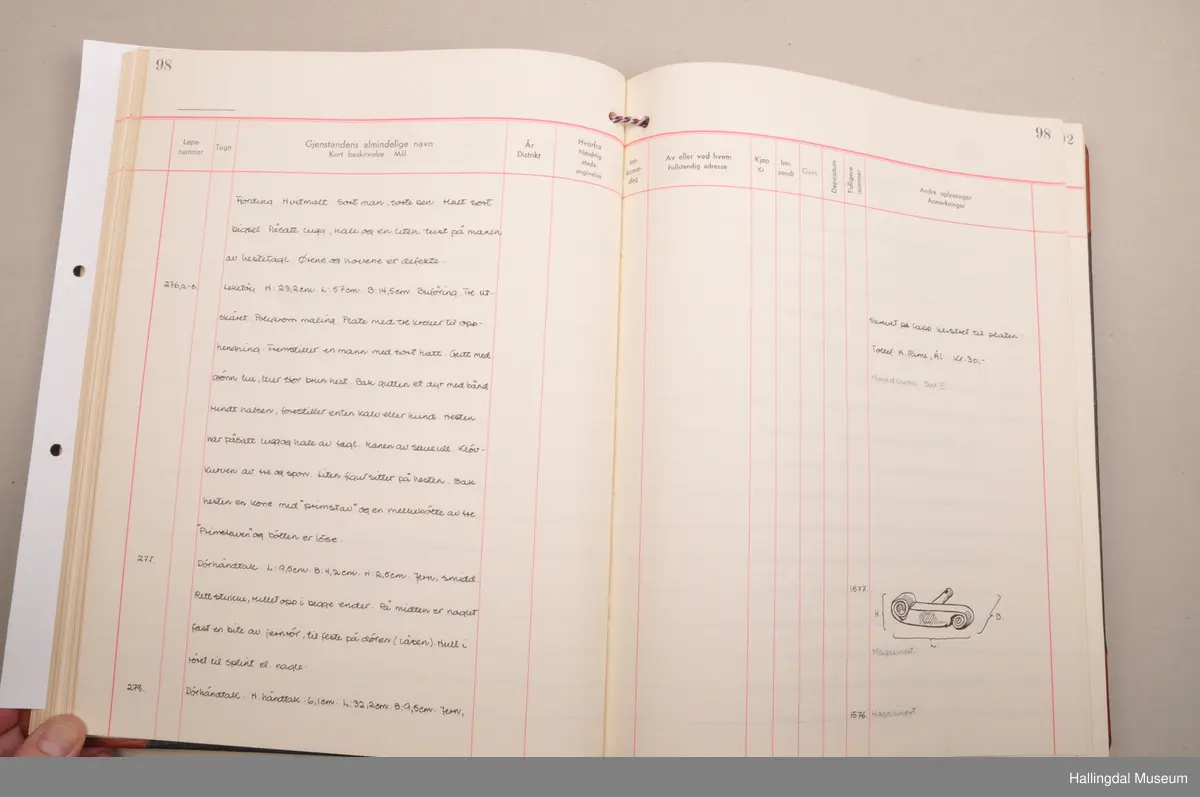 98
Løpe-
nummer
Tegn
Gjenstandens almindelige navn
Kort beskrivelse Mål
År
Distrikt
Hvorfra
Nøiaktig
steds-
angivelse
Fjording Hvitmalt Sort man, sorte ben Malt sort
bigsel Påsatt lugg, hale og en liten tust på manen
av hestetagl. Ørene og hovene er defekte.
276,a-e. Leketøy H: 23,2cm. L: 57cm. B: 14,5cm. Buføring. Tre ut-
skåret Polykrom maling. Plate med tre kroker til opp-
hengning. Fremstiller en mann med sort hatt. Gutt med
grønn lue, leier stor brun hest. Bak gutten et dyr med bånd
rundt halsen, forestiller enten kalv eller hund Hesten
har påsatt lugg og hale av tagl. Manen av saueull. Kløv-
kurven av tre og spon. Liten figur sitter på hesten. Bak
hesten en kone med "primstav" og en melkebøtte av tre
"Primstaven" og bøtten er løse.
277. Dörhåndtak. L: 9,5cm. B: 4,2cm. H: 2,5cm. Jern, smidd.
Rett stykke, rullet opp i begge ender. På midten er naglet
fast en bite av jernrör, til feste på dören (låsen). Hull i
röret til splint el. nagle.
278. Dörhåndtak. H. håndtak: 6,1cm. L: 32,2cm. B: 9,5cm. Jern,
98
12
Av eller ved hvem
Fullstendig adresse
Kjøp
Kr
Inn-
sendt
Gave
Depositum
Tidligere
nummer
Andre oplysninger
Anmerkninger
Skrevet på lapp klistret til platen:
Tollef H. Rime, Ål Kr. 30,-
1577.
H.
B.
L.
Magasinert.
1576 Magasinert
Hallingdal Museum